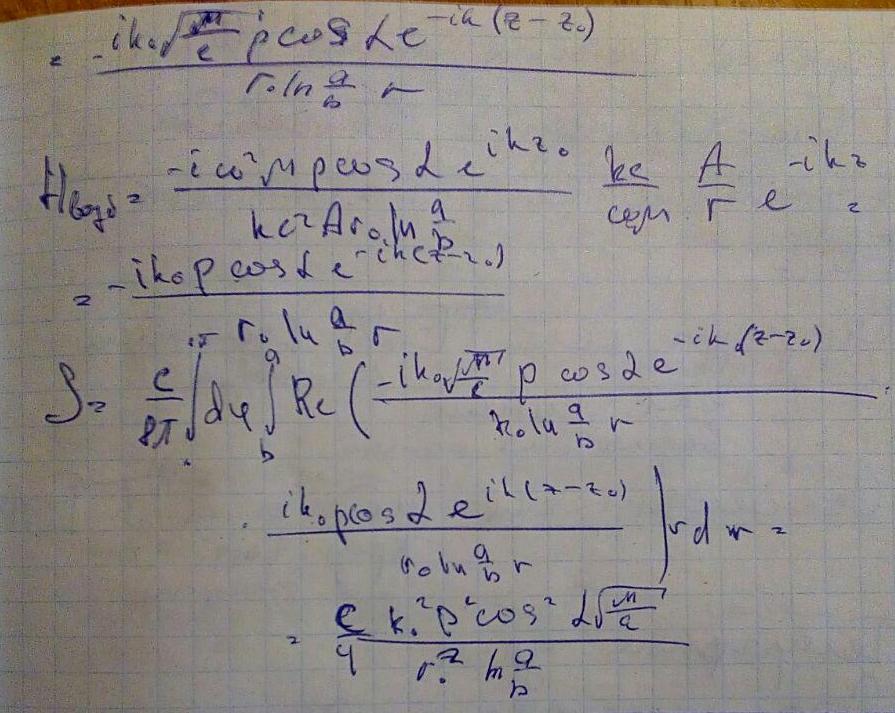 = \frac{-ik_0\sqrt{\frac{\mu}{\varepsilon}} p \cos\alpha e^{-ik(z-z_0)}}{r_0 \ln\frac{a}{b} r}
H_{возб} = \frac{-i\omega^2\mu p\cos\alpha e^{ikz_0}}{kc^2 A r_0 \ln\frac{a}{b}} \frac{kc}{\omega\mu} \frac{A}{r} e^{-ikz} =
= \frac{-ik_0 p \cos\alpha e^{-ik(z-z_0)}}{r_0 \ln\frac{a}{b} r}
S = \frac{c}{8\pi} \int d\varphi \int_b^a Re ( \frac{-ik_0\sqrt{\frac{\mu}{\varepsilon}} p \cos\alpha e^{-ik(z-z_0)}}{r_0 \ln\frac{a}{b} r} \cdot
\cdot \frac{ik_0 p\cos\alpha e^{ik(z-z_0)}}{r_0 \ln\frac{a}{b} r} ) r dr =
= \frac{c}{4} \frac{k_0^2 p^2 \cos^2\alpha \sqrt{\frac{\mu}{\varepsilon}}}{r_0^2 \ln\frac{a}{b}}